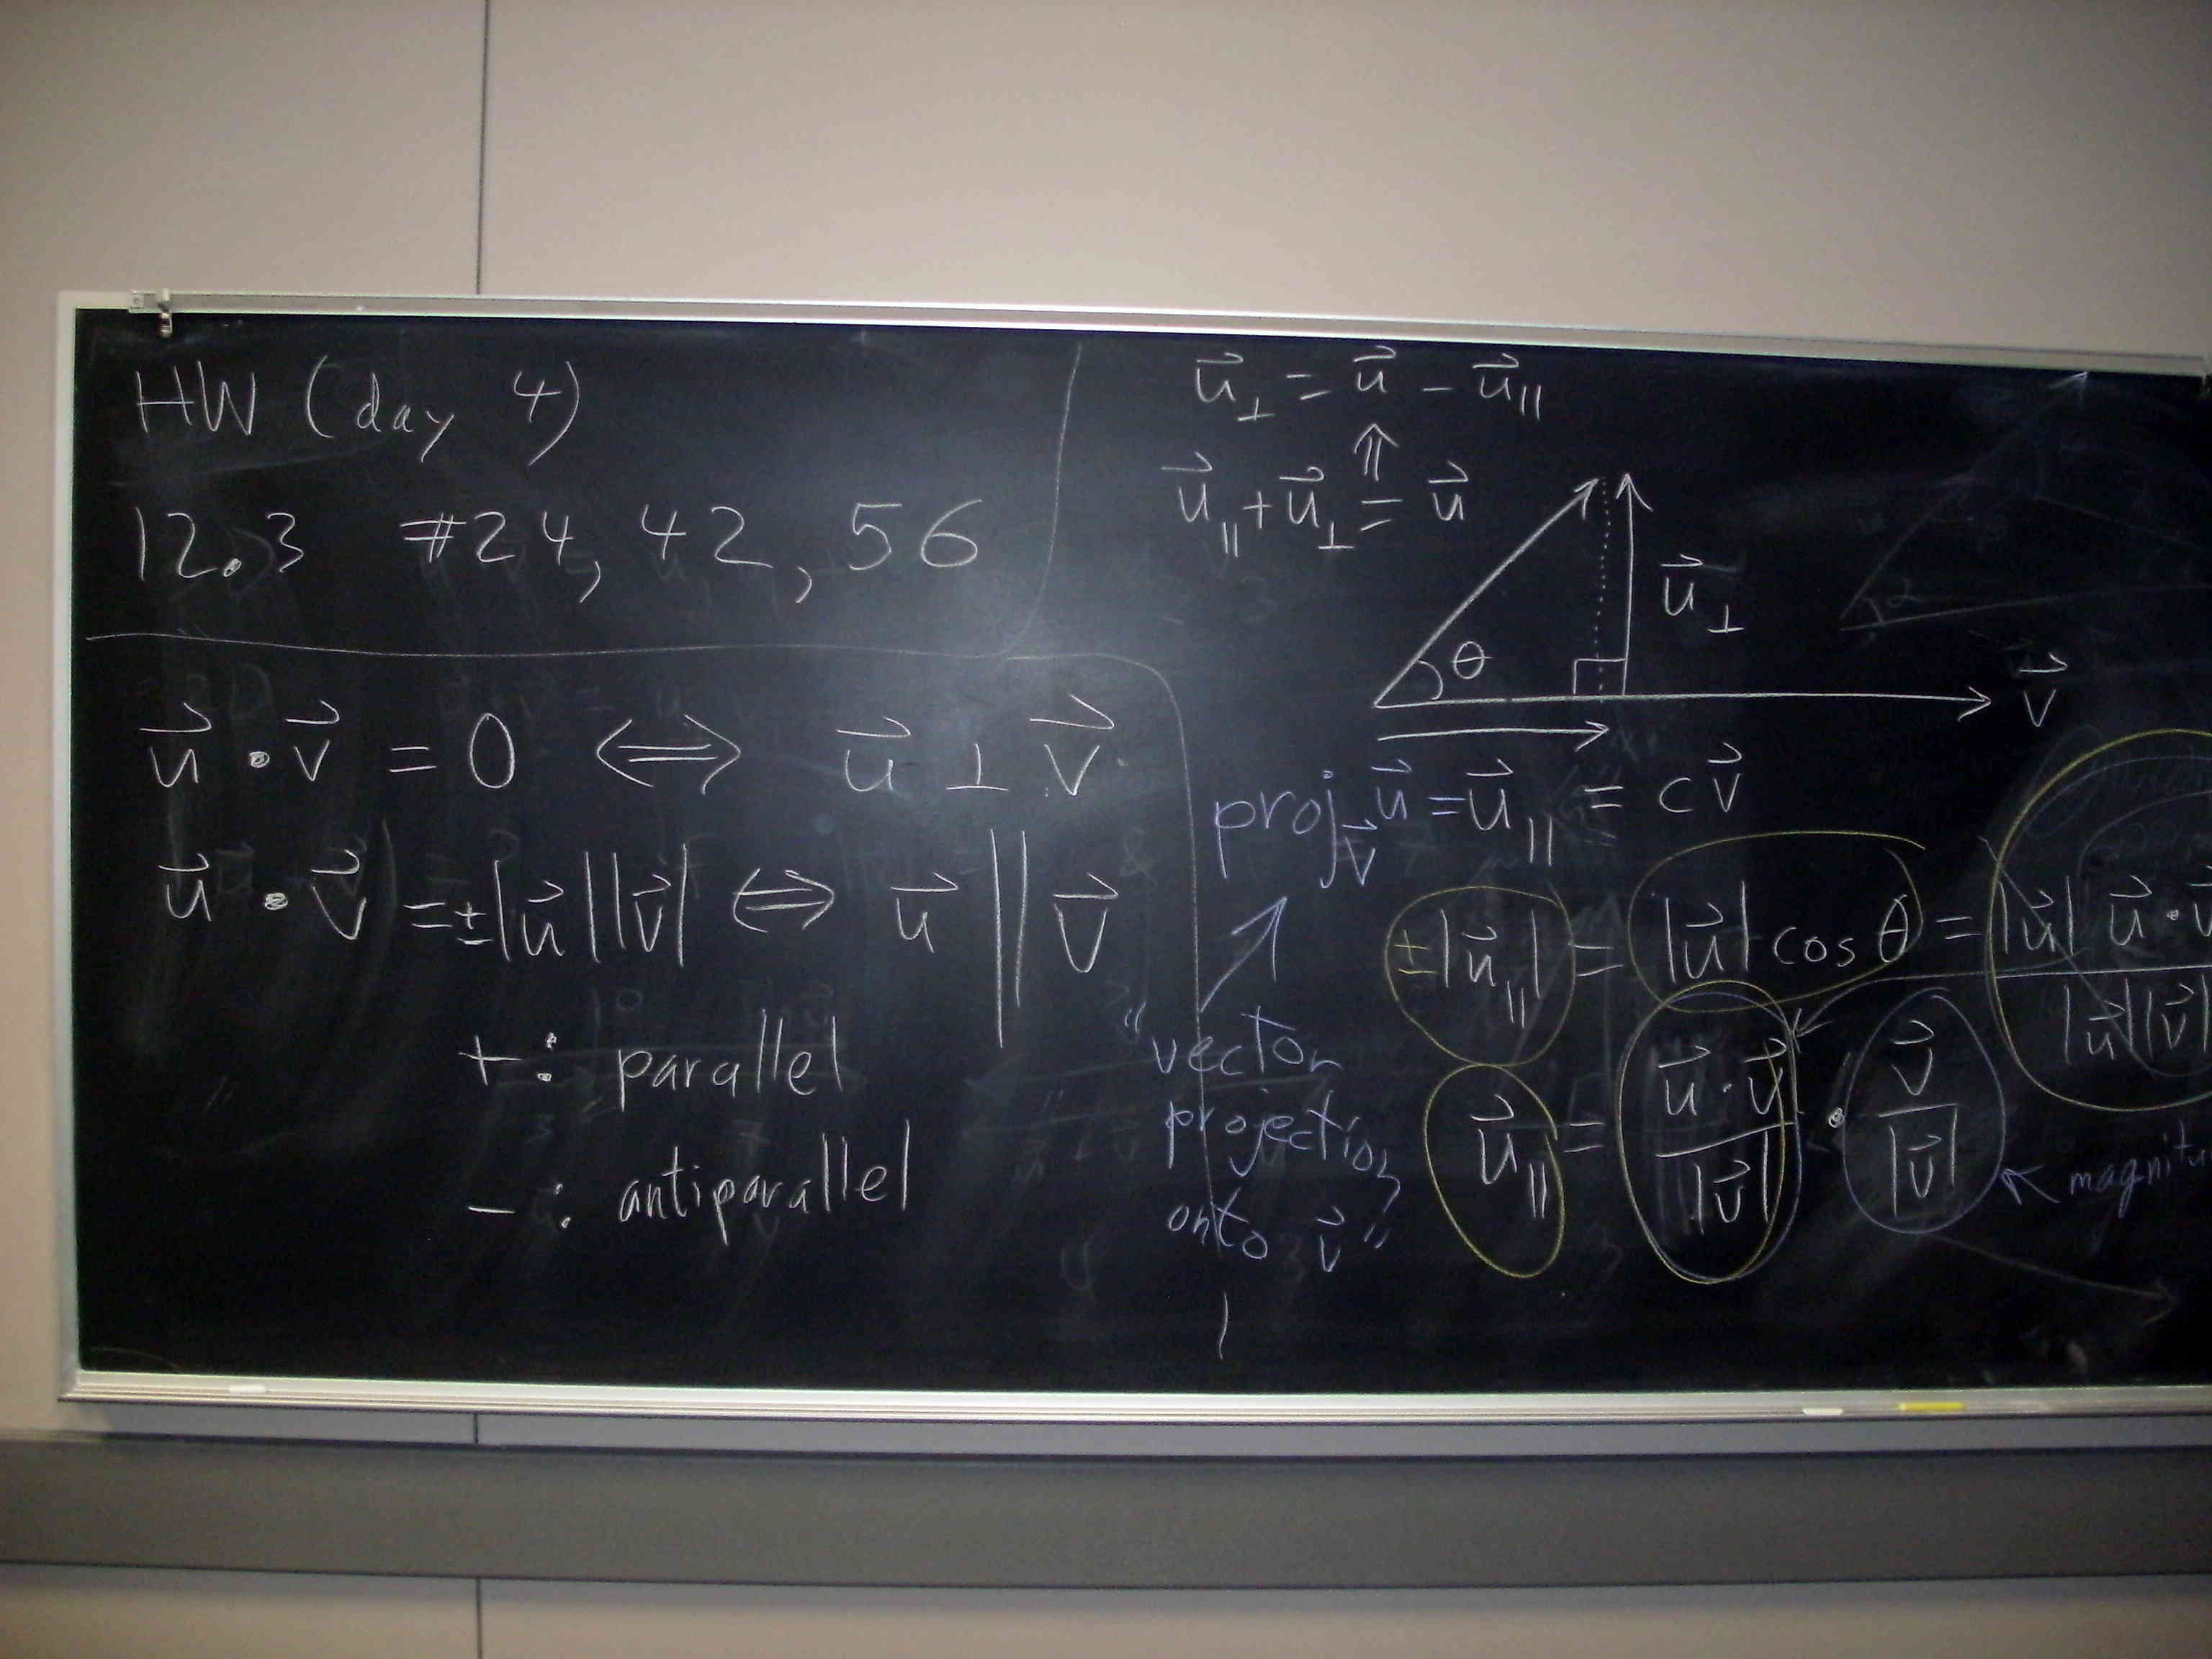 HW (day 4)
12.3 #24, 42, 56
u⃗ · v⃗ = 0 ⟺ u⃗ ⊥ v⃗
u⃗ · v⃗ = ±|u⃗||v⃗| ⟺ u⃗ ∥ v⃗
+: parallel
−: antiparallel
u⃗⊥ = u⃗ − u⃗∥
⇑
u⃗∥ + u⃗⊥ = u⃗
θ
u⃗⊥
v⃗
proj_v⃗ u⃗ = u⃗∥ = c v⃗
"vector
projection
onto v⃗"
±|u⃗∥| = |u⃗| cos θ = |u⃗| u⃗ · v⃗ / |u⃗||v⃗|
u⃗∥ = u⃗ · v⃗ / |v⃗| · v⃗ / |v⃗|